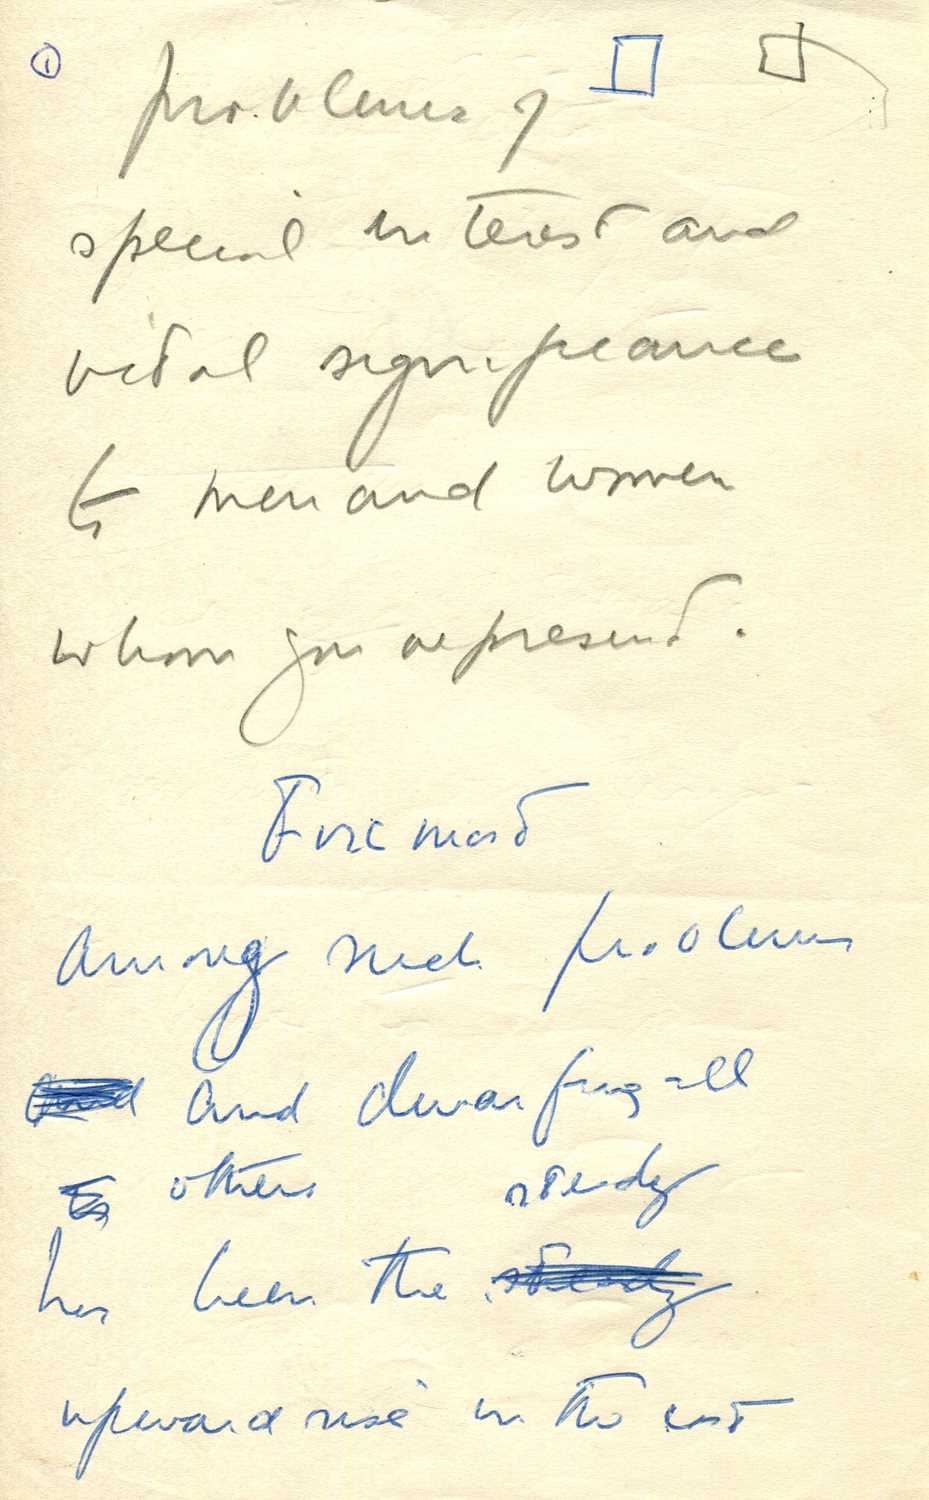 1
problems of
special interest and
vital significance
to men and women
whom you represent.
Foremost
among such problems
and and dwarfing all
to others steady
has been the steady
upward rise in the cost